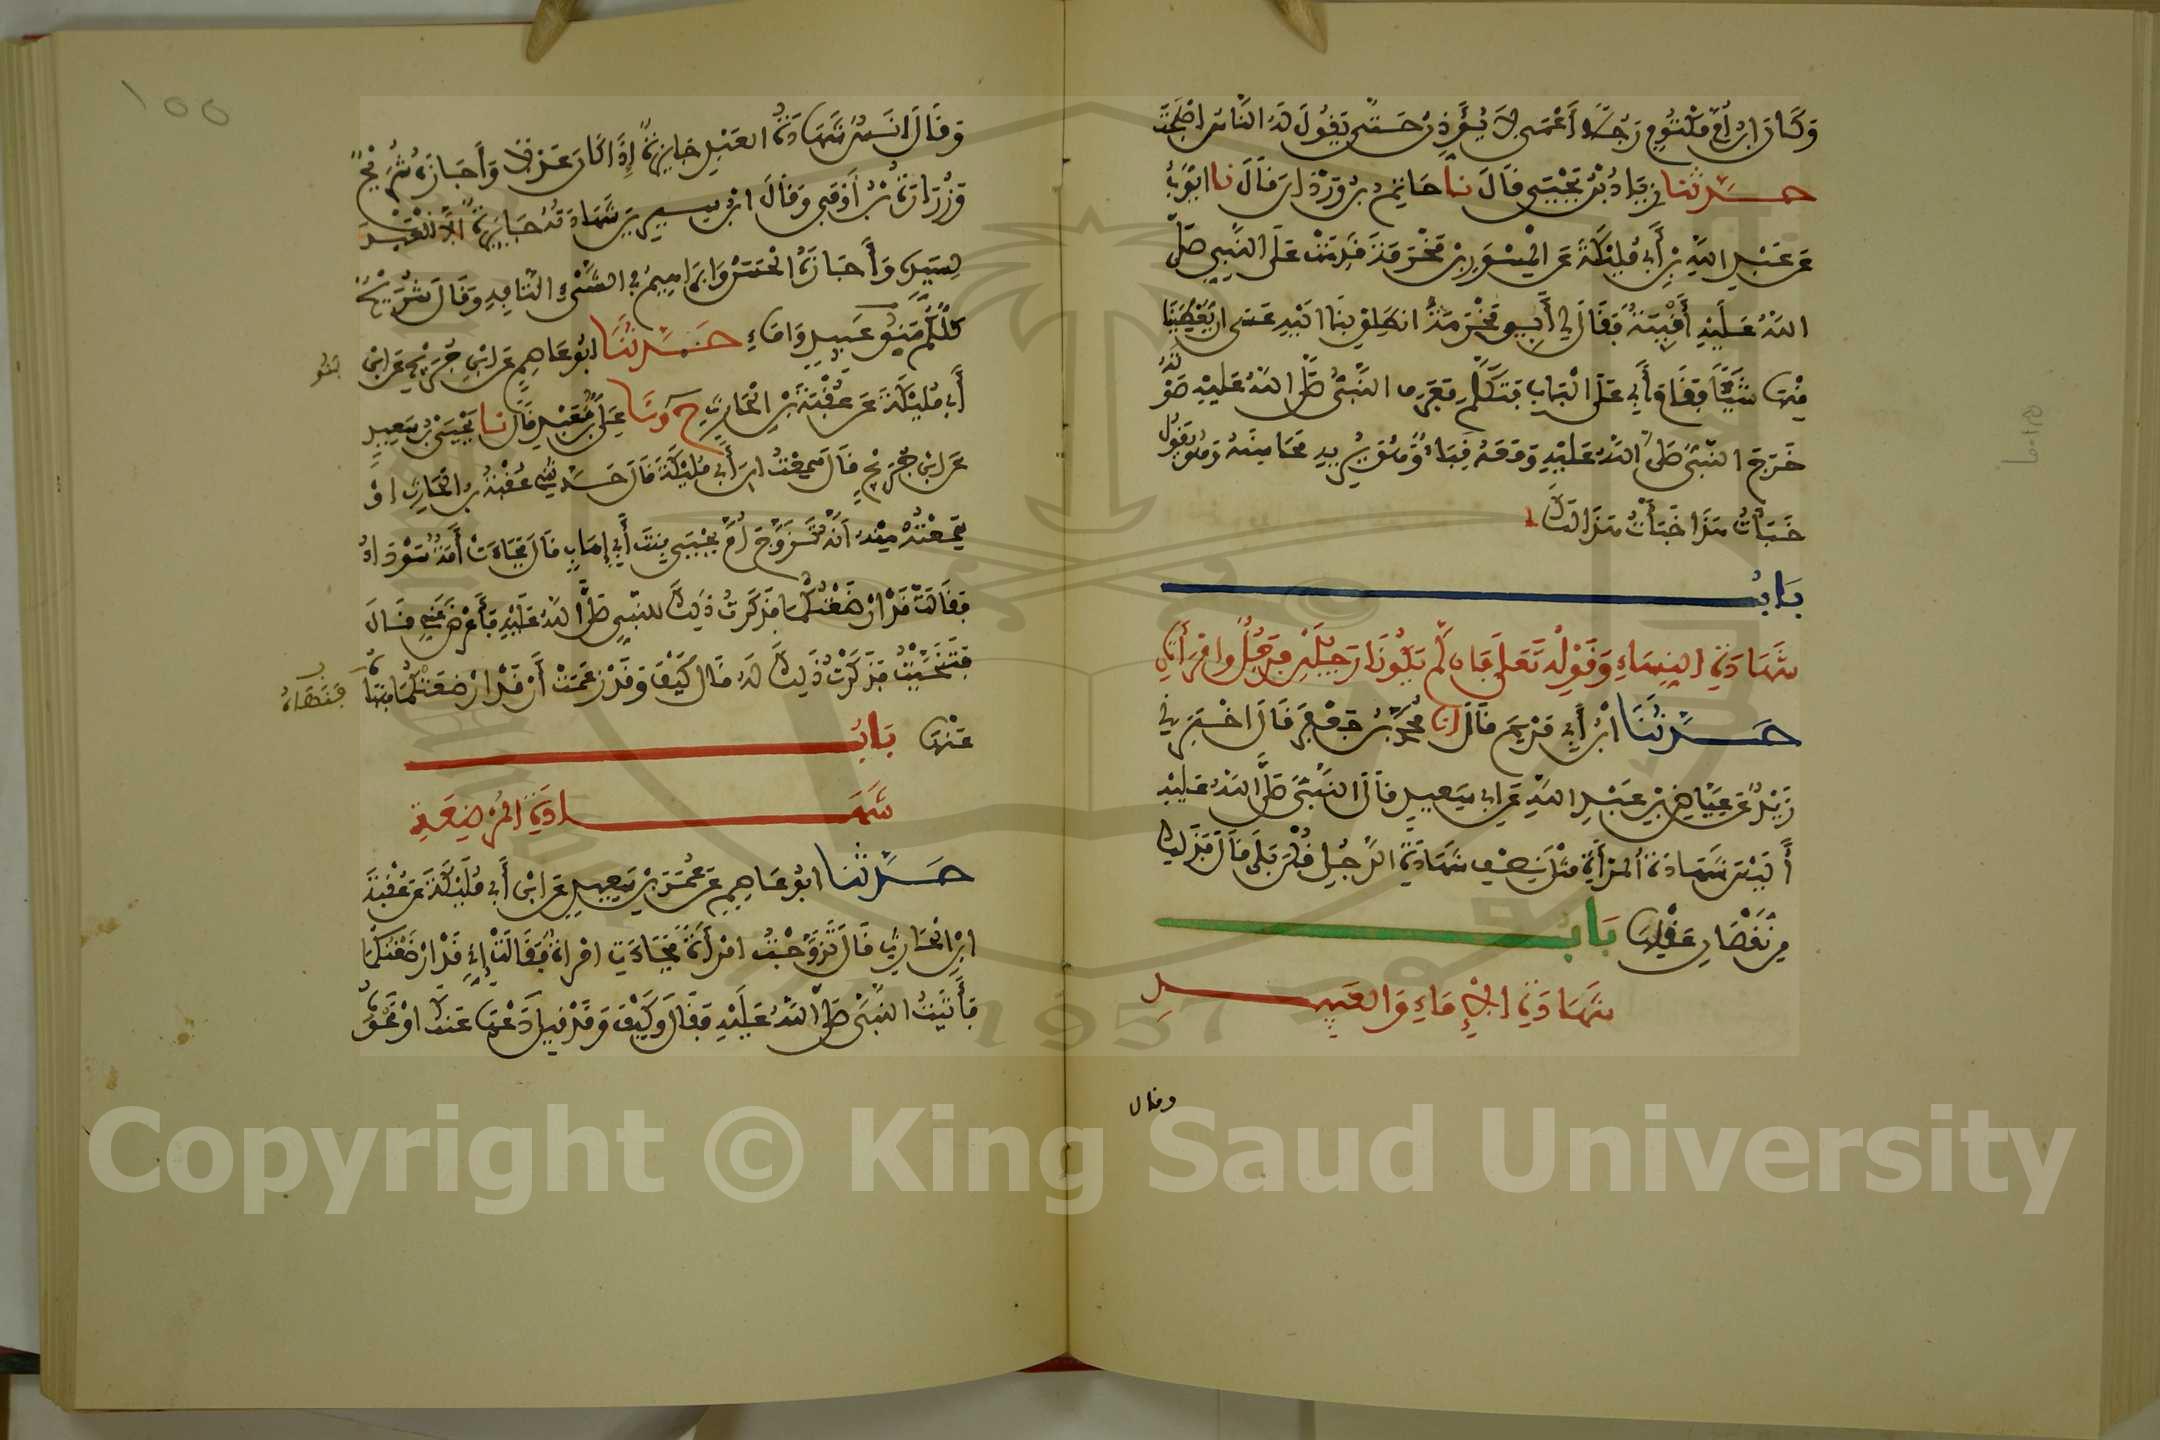 وَكَانَ ابْنُ أُمِّ مَكْتُومٍ رَجُلًا أَعْمَى لَا يُؤَذِّنُ حَتَّى يَقُولَ لَهُ النَّاسُ أَصْبَحْتَ
حَدَّثَنَا زِيَادُ بْنُ يَحْيَى قَالَ نا حَاتِمُ بْنُ وَرْدَانَ قَالَ نا أَيُّوبُ
عَنْ عَبْدِ اللهِ بْنِ أَبِي مُلَيْكَةَ عَنِ الْمِسْوَرِ بْنِ مَخْرَمَةَ قَدِمَتْ عَلَى النَّبِيِّ صَلَّى
اللهُ عَلَيْهِ أَقْبِيَةٌ فَقَالَ لِي أَبِي مَخْرَمَةُ انْطَلِقْ بِنَا إِلَيْهِ عَسَى أَنْ يُعْطِيَنَا
مِنْهَا شَيْئًا فَقَامَ أَبِي عَلَى الْبَابِ فَتَكَلَّمَ فَعَرَفَ النَّبِيُّ صَلَّى اللهُ عَلَيْهِ صَوْتَهُ
خَرَجَ النَّبِيُّ صَلَّى اللهُ عَلَيْهِ وَمَعَهُ قَبَاءٌ وَهُوَ يُرِيهِ مَحَاسِنَهُ وَهُوَ يَقُولُ
خَبَأْتُ هَذَا خَبَأْتُ هَذَا لَكَ
بَابُ
شَهَادَةِ النِّسَاءِ وَقَوْلِهِ تَعَلَى فَإِن لَّمْ يَكُونَا رَجُلَيْنِ فَرَجُلٌ وَامْرَأَتَانِ
حَدَّثَنَا ابْنُ أَبِي مَرْيَمَ قَالَ انا مُحَمَّدُ بْنُ جَعْفَرٍ قَالَ أَخْبَرَنِي
زَيْدٌ عَنْ عِيَاضِ بْنِ عَبْدِ اللهِ عَنْ أَبِي سَعِيدٍ قَالَ النَّبِيُّ صَلَّى اللهُ عَلَيْهِ
أَلَيْسَ شَهَادَةُ الْمَرْأَةِ مِثْلَ نِصْفِ شَهَادَةِ الرَّجُلِ قُلْنَ بَلَى قَالَ فَذَلِكَ
مِنْ نُقْصَانِ عَقْلِهَا بَابُ
شَهَادَةِ الْإِمَاءِ وَالْعَبِيدِ
وقال
١٥٥
وَقَالَ أَنَسٌ شَهَادَةُ الْعَبْدِ جَايِزَةٌ إِذَا كَانَ عَدْلًا وَأَجَازَهُ شُرَيْحٌ
وَزُرَارَةُ بْنُ أَوْفَى وَقَالَ ابْنُ سِيرِينَ شَهَادَتُهُ جَايِزَةٌ إِلَّا الْعَبْدَ
لِسَيِّدِهِ وَأَجَازَهُ الْحَسَنُ وَإِبْرَاهِيمُ فِي الشَّيْءِ التَّافِهِ وَقَالَ شُرَيْحٌ
كُلُّكُمْ بَنُو عَبِيدٍ وَإِمَاءٍ حَدَّثَنَا أَبُو عَاصِمٍ عَنِ ابْنِ جُرَيْجٍ عَنِ ابْنِ
أَبِي مُلَيْكَةَ عَنْ عُقْبَةَ بْنِ الْحَارِثِ ح وَنا عَلِيُّ بْنُ عَبْدِ قَالَ نا يَحْيَى بْنُ سَعِيدٍ
عَنِ ابْنِ جُرَيْجٍ قَالَ سَمِعْتُ ابْنَ أَبِي مُلَيْكَةَ قَالَ حَدَّثَنِي عُقْبَةُ بْنُ الْحَارِثِ أَوْ
سَمِعْتُهُ مِنْهُ أَنَّهُ تَزَوَّجَ أُمَّ يَحْيَى بِنْتَ أَبِي إِهَابٍ قَالَ فَجَاءَتْ أَمَةٌ سَوْدَاءُ
فَقَالَتْ قَدْ أَرْضَعْتُكُمَا فَذَكَرْتُ ذَلِكَ لِلنَّبِيِّ صَلَّى اللهُ عَلَيْهِ فَأَعْرَضَ عَنِّي قَالَ
فَتَنَحَّيْتُ فَذَكَرْتُ ذَلِكَ لَهُ قَالَ كَيْفَ وَقَدْ زَعَمَتْ أَنْ قَدْ أَرْضَعَتْكُمَا
فَنَهَاهُ
عَنْهَا بَابُ
شَهَادَةِ الْمُرْضِعَةِ
حَدَّثَنَا أَبُو عَاصِمٍ عَنْ عُمَرَ بْنِ سَعِيدٍ عَنِ ابْنِ أَبِي مُلَيْكَةَ عَنْ عُقْبَةَ
ابْنِ الْحَارِثِ قَالَ تَزَوَّجْتُ امْرَأَةً فَجَاءَتِ امْرَأَةٌ فَقَالَتْ إِنِّي قَدْ أَرْضَعْتُكُمَا
فَأَتَيْتُ النَّبِيَّ صَلَّى اللهُ عَلَيْهِ فَقَالَ وَكَيْفَ وَقَدْ قِيلَ دَعْهَا عَنْكَ أَوْ نَحْوَهُ
Copyright © King Saud University
1957